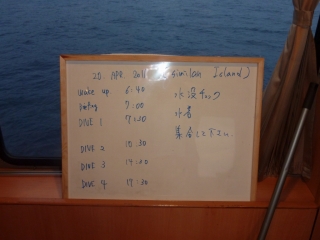 20. APR. (Similan Island)
wake up 6:40
7:00
DIVE 1 7:20
DIVE 2 10:30
DIVE 3 14:00
DIVE 4 17:30
水没チェック
水着
集合して下さい